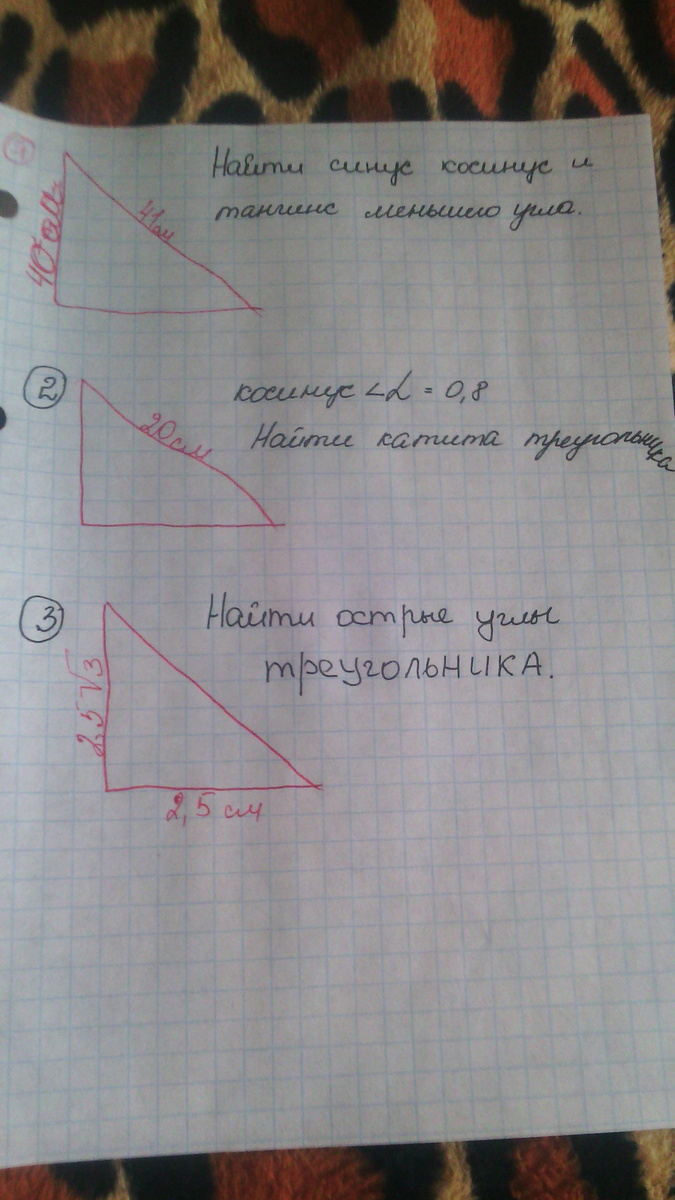 1
Найти синус косинус и
тангинс меньшего угла.
40 см
41 см
2
косинус ∠α = 0,8
20 см
Найти катита треугольника
3
Найти острые углы
треугольника.
2,5√3
2,5 см